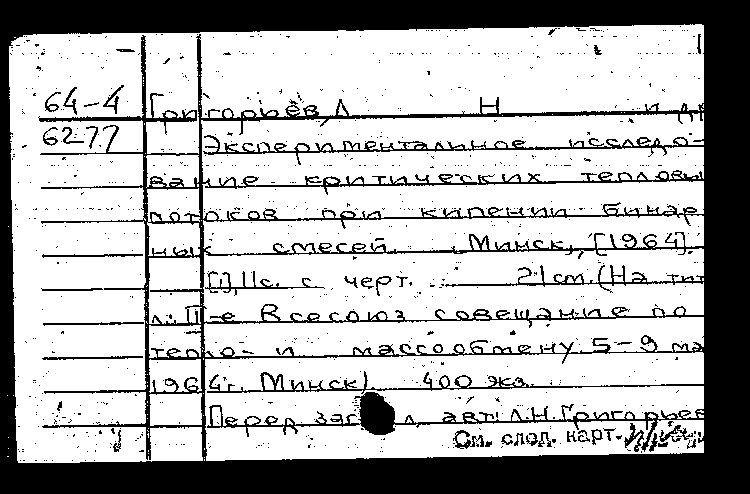 64-4 Григорьев, Л Н и др
6277 Экспериментальное исследо-
вание критических тепловы
потоков при кипении бинар
ных смесей. Минск, [1964].
[1], 11с. с черт. 21 см. (На тит
л.: II-е Всесоюз совещание по
тепло- и массообмену. 5-9 ма
1964г. Минск). 400 экз.
Перед. заг л. авт: Л.Н. Григорьев
См. след. карт.